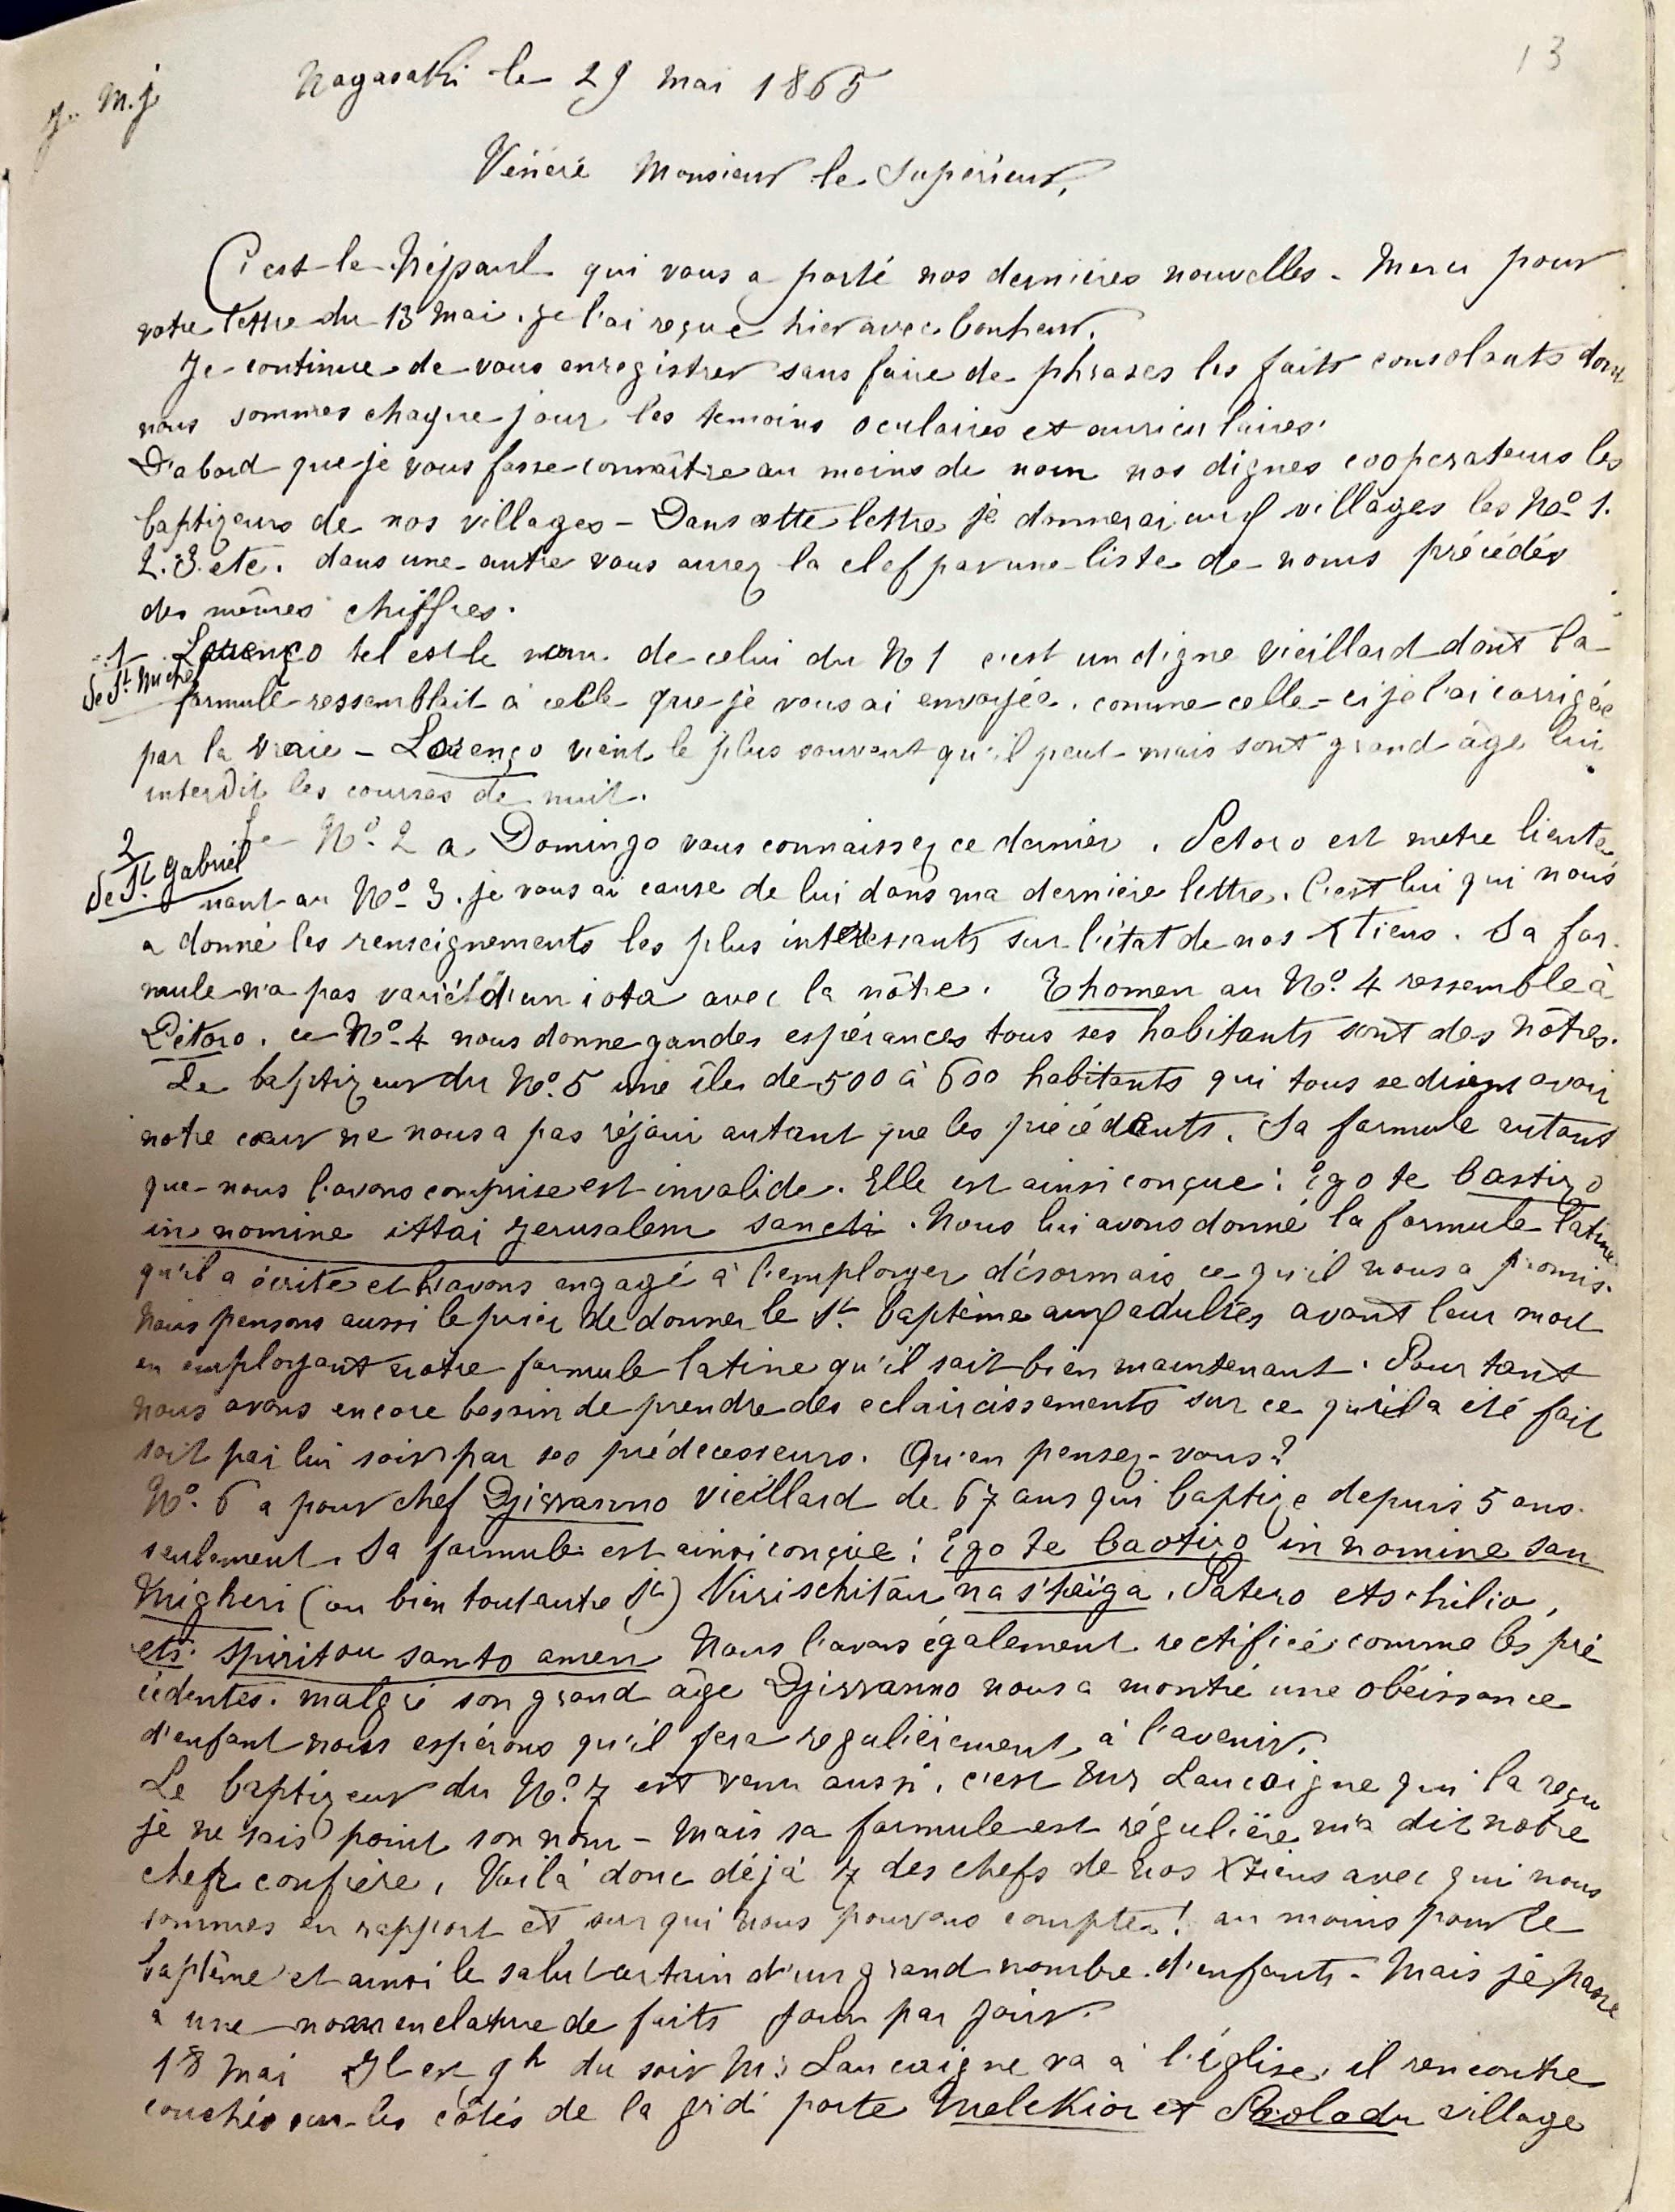 13
J. M. J.
Nagasaki le 29 Mai 1865
Vénéré Monsieur le Supérieur,
C'est le Népaul qui vous a porté nos dernières nouvelles - Merci pour
votre lettre du 13 Mai. je l'ai reçue hier avec bonheur.
Je continue de vous enregistrer sans faire de phrases les faits consolants dont
nous sommes chaque jour les temoins oculaires et auriculaires.
D'abord que je vous fasse connaître au moins de nom nos dignes cooperateurs les
baptizeurs de nos villages - Dans cette lettre je donnerai aux villages les No 1.
2. 3. etc. dans une autre vous aurez la clef par une liste de noms précédés
des mêmes chiffres.
1 Lorenço tel est le nom de celui du N 1 c'est un digne vieillard dont la
de St. Michel
formule ressemblait à celle que je vous ai envoyée. comme celle-ci je l'ai corrigée
par la vraie - Lorenço vient le plus souvent qu'il peut mais sont grand âge lui
interdit les courses de nuit.
2 Le No. 2 a Domingo vous connaissez ce dernier. Petoro est notre lieute
de St Gabriel
nant au No 3. je vous ai cause de lui dans ma dernière lettre. C'est lui qui nous
a donné les renseignements les plus interessants sur l'état de nos Xtiens. Sa for-
mule n'a pas varié d'un iota avec la nôtre. Thomen au No. 4 ressemble à
Petoro. ce No 4 nous donne gandes espérances tous ses habitants sont des nôtres.
Le baptizeur du No. 5 une île de 500 à 600 habitants qui tous se disent avoir
notre cœur ne nous a pas réjoui autant que les précédents. Sa formule autant
que nous l'avons comprise est invalide. Elle est ainsi conçue : Ego te bastizo
in nomine ittai Jerusalem sancti. Nous lui avons donné la formule latine
qu'il a écrite et l'avons engagé à l'employer désormais ce qu'il nous a promis.
Nous pensons aussi le prier de donner le St. baptème aux adultes avant leur mort
en employant notre formule latine qu'il sait bien maintenant. Pour tant
nous avons encore besoin de prendre des eclaircissements sur ce qu'il a été fait
soit par lui soit par ses prédecesseurs. Qu'en pensez-vous ?
No. 6 a pour chef Djiwanno vieillard de 67 ans qui baptize depuis 5 ans
seulement. Sa formule est ainsi conçue : Ego te baotizo in nomine san
Migheri (ou bien tout autre St) Virischitan na s'téïga. Patero ets hilio,
ets spiritou santo amen Nous l'avons également rectifiée comme les pré
cédentes. malgré son grand âge Djiwanno nous a montré une obéissance
d'enfant nous espérons qu'il fera regulièrement à l'avenir.
Le baptizeur du No. 7 est venu aussi. c'est Mr Laucaigne qui l'a reçu
je ne sais point son nom - mais sa formule est régulière m'a dit notre
cher confrère. Voilà donc déjà 7 des chefs de nos Xtiens avec qui nous
sommes en rapport et sur qui nous pouvons compter ! au moins pour le
baptême et ainsi le salut certain d'un grand nombre d'enfants - Mais je passe
à une nomenclature de faits jour par jour.
18 Mai Il est 9h du soir Mr Laucaigne va à l'église, il rencontre
couchés sur les côtés de la grde porte Melekior et Paolo du village